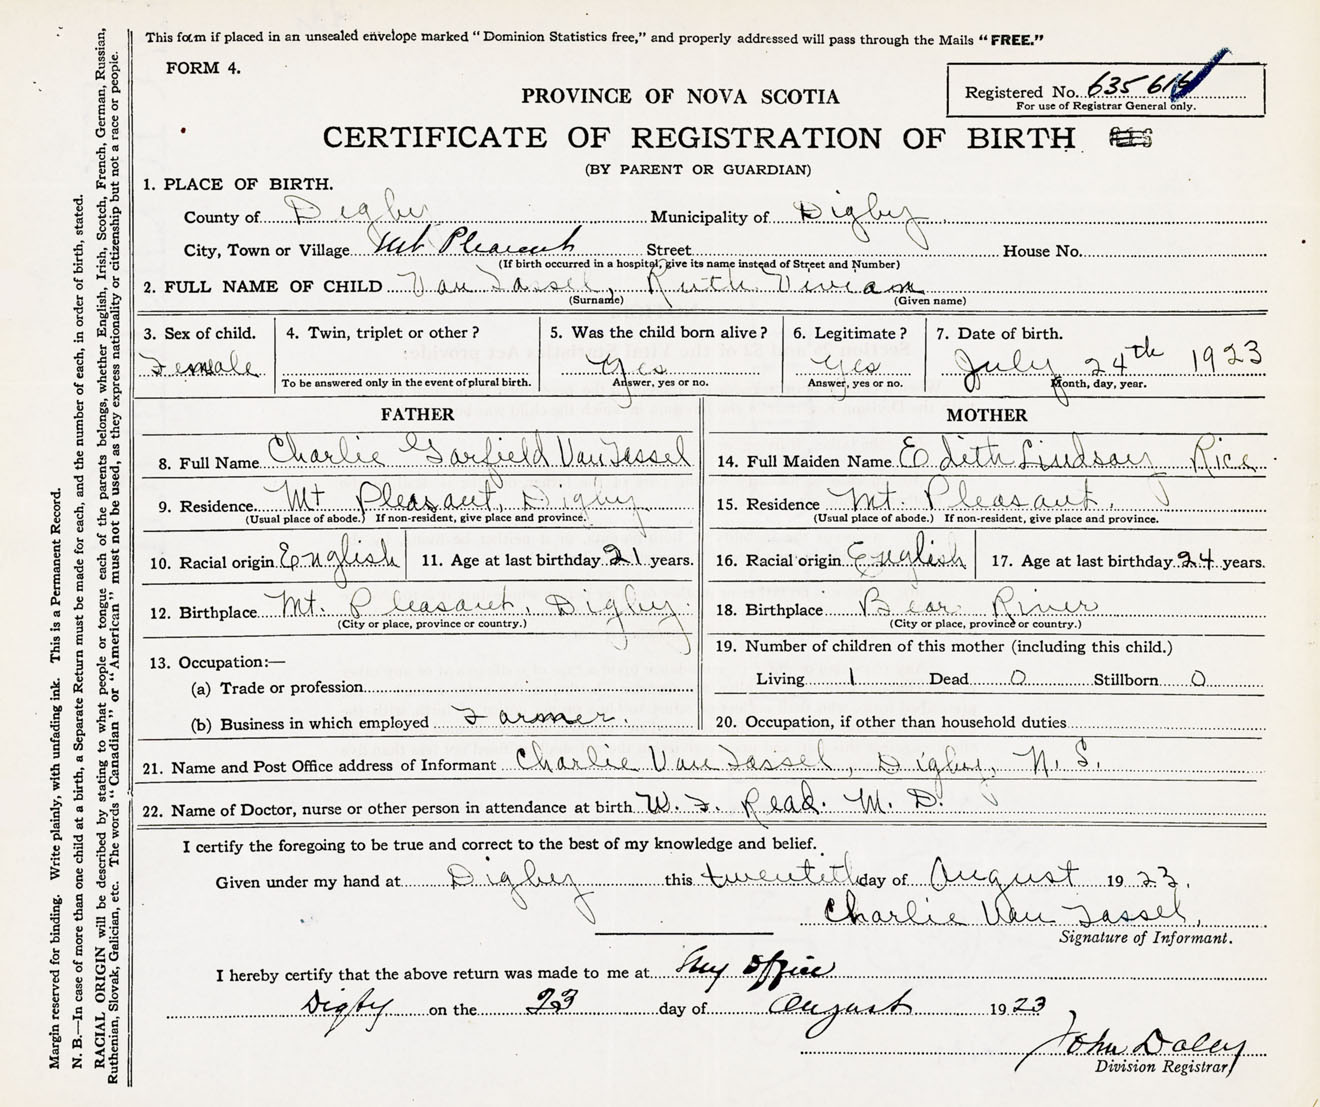 This form if placed in an unsealed envelope marked "Dominion Statistics free," and properly addressed will pass through the Mails "FREE."
FORM 4.
Registered No. 635 61
For use of Registrar General only.
PROVINCE OF NOVA SCOTIA
CERTIFICATE OF REGISTRATION OF BIRTH
(BY PARENT OR GUARDIAN)
1. PLACE OF BIRTH.
County of Digby Municipality of Digby
City, Town or Village Mt Pleasant Street House No.
(If birth occurred in a hospital, give its name instead of Street and Number)
2. FULL NAME OF CHILD Van Tassel, Ruth Vivian
(Surname) (Given name)
3. Sex of child. 4. Twin, triplet or other? 5. Was the child born alive? 6. Legitimate? 7. Date of birth.
Female Yes Yes July 24th 1923
To be answered only in the event of plural birth. Answer, yes or no. Answer, yes or no. Month, day, year.
FATHER
8. Full Name Charlie Garfield Van Tassel
9. Residence Mt Pleasant, Digby
(Usual place of abode.) If non-resident, give place and province.
10. Racial origin English 11. Age at last birthday 21 years.
12. Birthplace Mt. Pleasant, Digby
(City or place, province or country.)
13. Occupation:—
(a) Trade or profession
(b) Business in which employed Farmer.
MOTHER
14. Full Maiden Name Edith Lindsay Rice
15. Residence Mt. Pleasant,
(Usual place of abode.) If non-resident, give place and province.
16. Racial origin English 17. Age at last birthday 24 years.
18. Birthplace Bear River
(City or place, province or country.)
19. Number of children of this mother (including this child.)
Living 1 Dead 0 Stillborn 0
20. Occupation, if other than household duties
21. Name and Post Office address of Informant Charlie Van Tassel, Digby, N. S.
22. Name of Doctor, nurse or other person in attendance at birth W. F. Read. M. D.
I certify the foregoing to be true and correct to the best of my knowledge and belief.
Given under my hand at Digby this twentieth day of August 1923.
Charlie Van Tassel,
Signature of Informant.
I hereby certify that the above return was made to me at my office
Digby on the 23 day of August 1923
John Daley
Division Registrar
Margin reserved for binding. Write plainly, with unfading ink. This is a Permanent Record.
N. B.—In case of more than one child at a birth, a Separate Return must be made for each, and the number of each, in order of birth, stated.
RACIAL ORIGIN will be described by stating to what people or tongue each of the parents belongs, whether English, Irish, Scotch, French, German, Russian,
Ruthenian, Slovak, Galician, etc. The words "Canadian" or "American" must not be used, as they express nationality or citizenship but not a race or people.